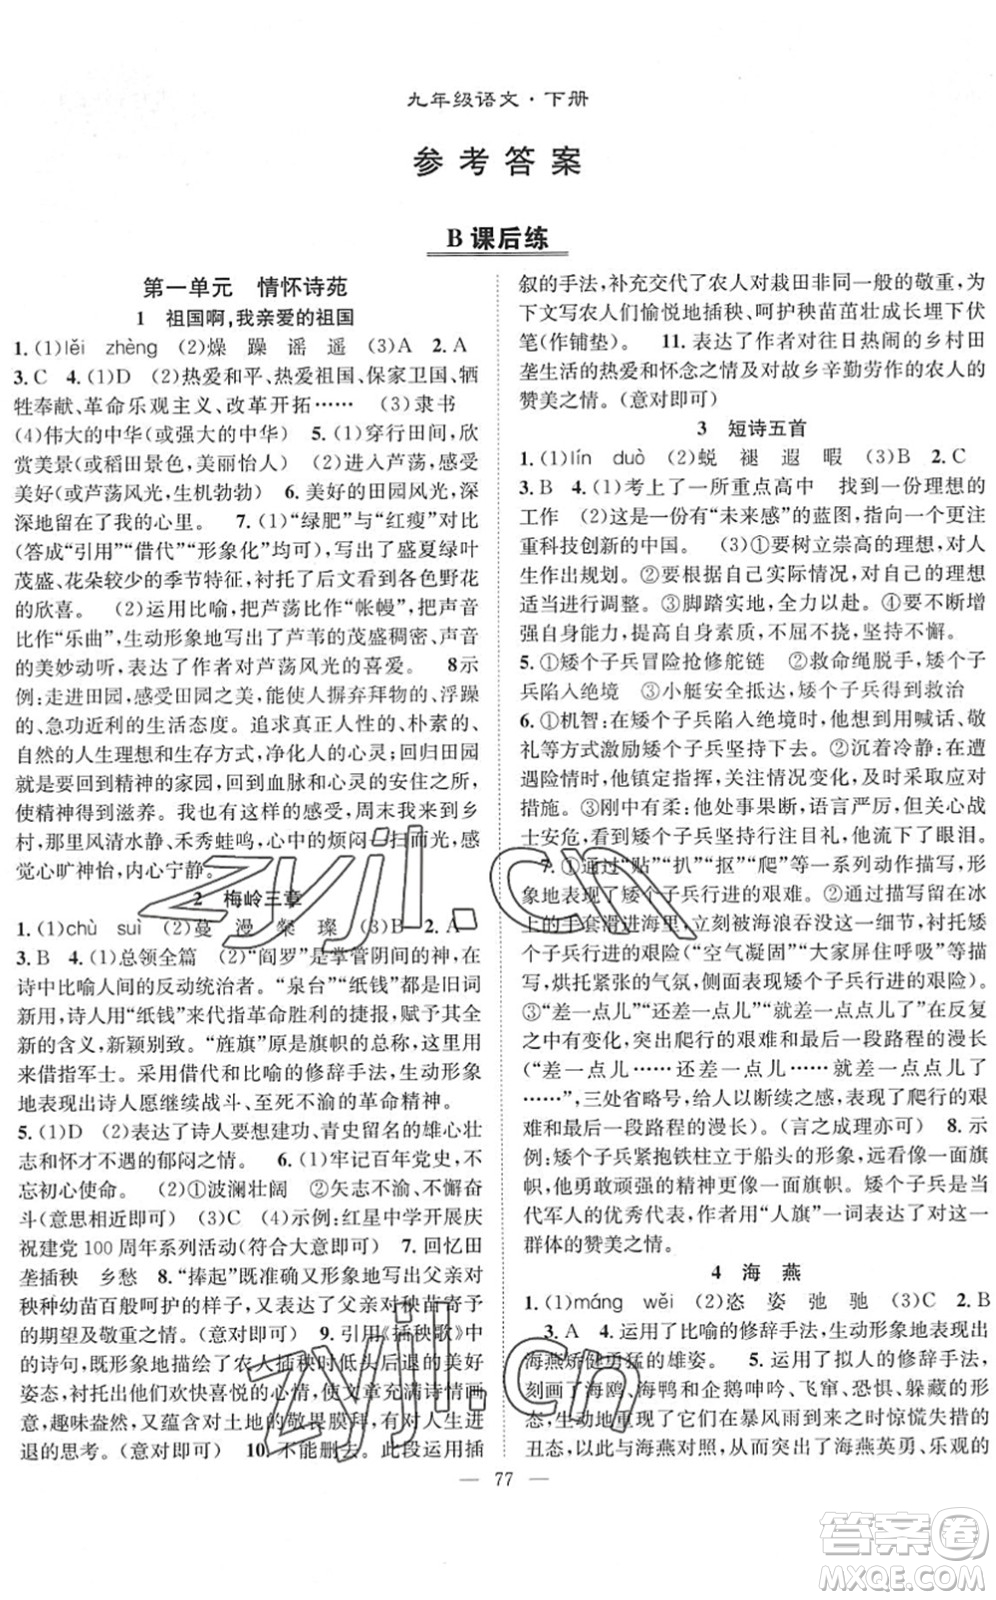 九年级语文·下册
参考答案
B 课后练
第一单元 情怀诗苑
1 祖国啊,我亲爱的祖国
1.(1)lěi zhèng (2)燥 躁 谣 遥 (3)A 2.A
3.C 4.(1)D (2)热爱和平、热爱祖国、保家卫国、牺
牲奉献、革命乐观主义、改革开拓…… (3)隶书
(4)伟大的中华(或强大的中华) 5.(1)穿行田间,欣
赏美景(或稻田景色,美丽怡人) (2)进入芦荡,感受
美好(或芦荡风光,生机勃勃) 6.美好的田园风光,深
深地留在了我的心里。 7.(1)“绿肥”与“红瘦”对比
(答成“引用”“借代”“形象化”均可),写出了盛夏绿叶
茂盛、花朵较少的季节特征,衬托了后文看到各色野花
的欣喜。 (2)运用比喻,把芦荡比作“帐幔”,把声音
比作“乐曲”,生动形象地写出了芦苇的茂盛稠密、声音
的美妙动听,表达了作者对芦荡风光的喜爱。 8示
例:走进田园,感受田园之美,能使人摒弃拜物的、浮躁
的、急功近利的生活态度。追求真正人性的、朴素的、
自然的人生理想和生存方式,净化人的心灵;回归田园
就是回到精神的家园,回到血脉和心灵的安住之所,
使精神得到滋养。我也有这样的感受,周末我回到乡
村,那里风清水静、禾秀蛙鸣,心中的烦闷一扫而光,感
觉心旷神怡,内心宁静。
2 梅岭三章
1.(1)chù suì (2)蔓 漫 粲 璨 (3)B 2.A
3.B 4.(1)总领全篇 (2)“阎罗”是掌管阴间的神,在
诗中比喻人间的反动统治者。“泉台”“纸钱”都是旧词
新用,诗人用“纸钱”来代指革命胜利的捷报,赋予其全
新的含义,新颖别致。“旌旗”原是旗帜的总称,这里用
来借指军士。采用借代和比喻的修辞手法,生动形象
地表现出诗人愿继续战斗、至死不渝的革命精神。
5.(1)D (2)表达了诗人要想建功、青史留名的雄心壮
志和怀才不遇的郁闷之情。 6.(1)牢记百年党史,不
忘初心使命。 (2)①波澜壮阔 ②矢志不渝、不懈奋
斗(意思相近即可) (3)C (4)示例:红星中学开展庆
祝建党 100 周年系列活动(符合大意即可) 7.回忆田
垄插秧 乡愁 8.“捧起”既形象地写出了父亲对
秧种幼苗百般呵护的样子,又体现了父亲对秧苗寄予
的期望及敬重之情。(意对即可) 9.引用《插秧歌》中
的诗句,既形象地描绘了农人插秧时后退的美好
姿态,衬托出他们欢快喜悦的心情,使文章充满诗情画
意,趣味盎然,又蕴含对土地的敬畏膜拜,有对人生进
退的思考。(意对即可) 10.不能删去。此段运用插
叙的手法,补充交代了农人对栽田非同一般的敬重,为
下文写农人们愉悦地插秧、呵护秧苗茁壮成长埋下伏
笔(作铺垫)。 11.表达了作者对往日热闹的乡村田
垄生活的热爱和怀念之情以及对故乡辛勤劳作的农人的
赞美之情。(意对即可)
3 短诗五首
1.(1)lín duò (2)蜕 褪 遐 暇 (3)B 2.C
3.B 4.(1)考上了一所重点高中 找到一份理想的
工作 (2)这是一份有“未来感”的蓝图,指向一个更注
重科技创新的中国。 (3)①要树立崇高的理想,对人
生作出规划。②要根据自己实际情况,对自己的理想
适时进行调整。③脚踏实地,全力以赴。④要不断增
强自身能力,提高自身素质。⑤永不放弃,坚持不懈。
5.①矮个子兵冒险抢修舵链 ②救命绳脱手,矮个子
兵陷入绝境 ③小艇安全返航,矮个子兵得到救治
6.①机智:在矮个子兵陷入绝境时,他想到用喊话、敬
礼等方式激励矮个子兵坚持下去。②沉着冷静:在遭
遇险情时,他镇定指挥,关注情况变化,及时采取应对
措施。③刚中有柔:他处事果断,语言严厉,但关心战
士安危,看到矮个子兵坚持行注目礼,他流下了眼泪。
7.①通过“贴”“扒”“抠”“爬”等一系列动作描写,形
象地表现了矮个子兵行进的艰难。②通过留在冰
上的手套滑进海里,立刻被海浪吞没这一细节,衬托矮
个子兵行进的艰险(“空气凝固”“大家屏住呼吸”)等描
写,烘托紧张的气氛,侧面表现矮个子兵行进的艰险。
③“差一点儿”“还差一点儿”“就差一点儿了”在反复
中有变化,突出爬行的艰难和最后一段路程的漫长
(“差一点儿……还差一点儿……就差一点儿
……”,三处省略号,给人以断续之感,表现了爬行的艰
难和最后一段路程的漫长)。(言之成理亦可) 8.示
例:矮个子兵紧抱铁柱立于船头的形象,远看像一面旗
帜,他勇敢顽强的精神更像一面旗帜。矮个子兵是当
代军人的优秀代表,作者用“人旗”一词表达了对这一
群体的赞美之情。
4 海燕
1.(1)máng wěi (2)恣 姿 弛 驰 (3)C 2.B
3.A 4.运用了比喻的修辞手法,生动形象地表现出
海燕矫健勇猛的雄姿。 5.运用了拟人的修辞手法,
刻画了海鸥、海鸭和企鹅呻吟、飞窜、恐惧、躲藏的形
象,生动地表现了它们在暴风雨来到之时惊慌失措的
丑态,以此与海燕对照,突出了海燕英勇、乐观的
— 77 —
答案圈
MXQE.COM
zyjl.cn
zyjl.cn